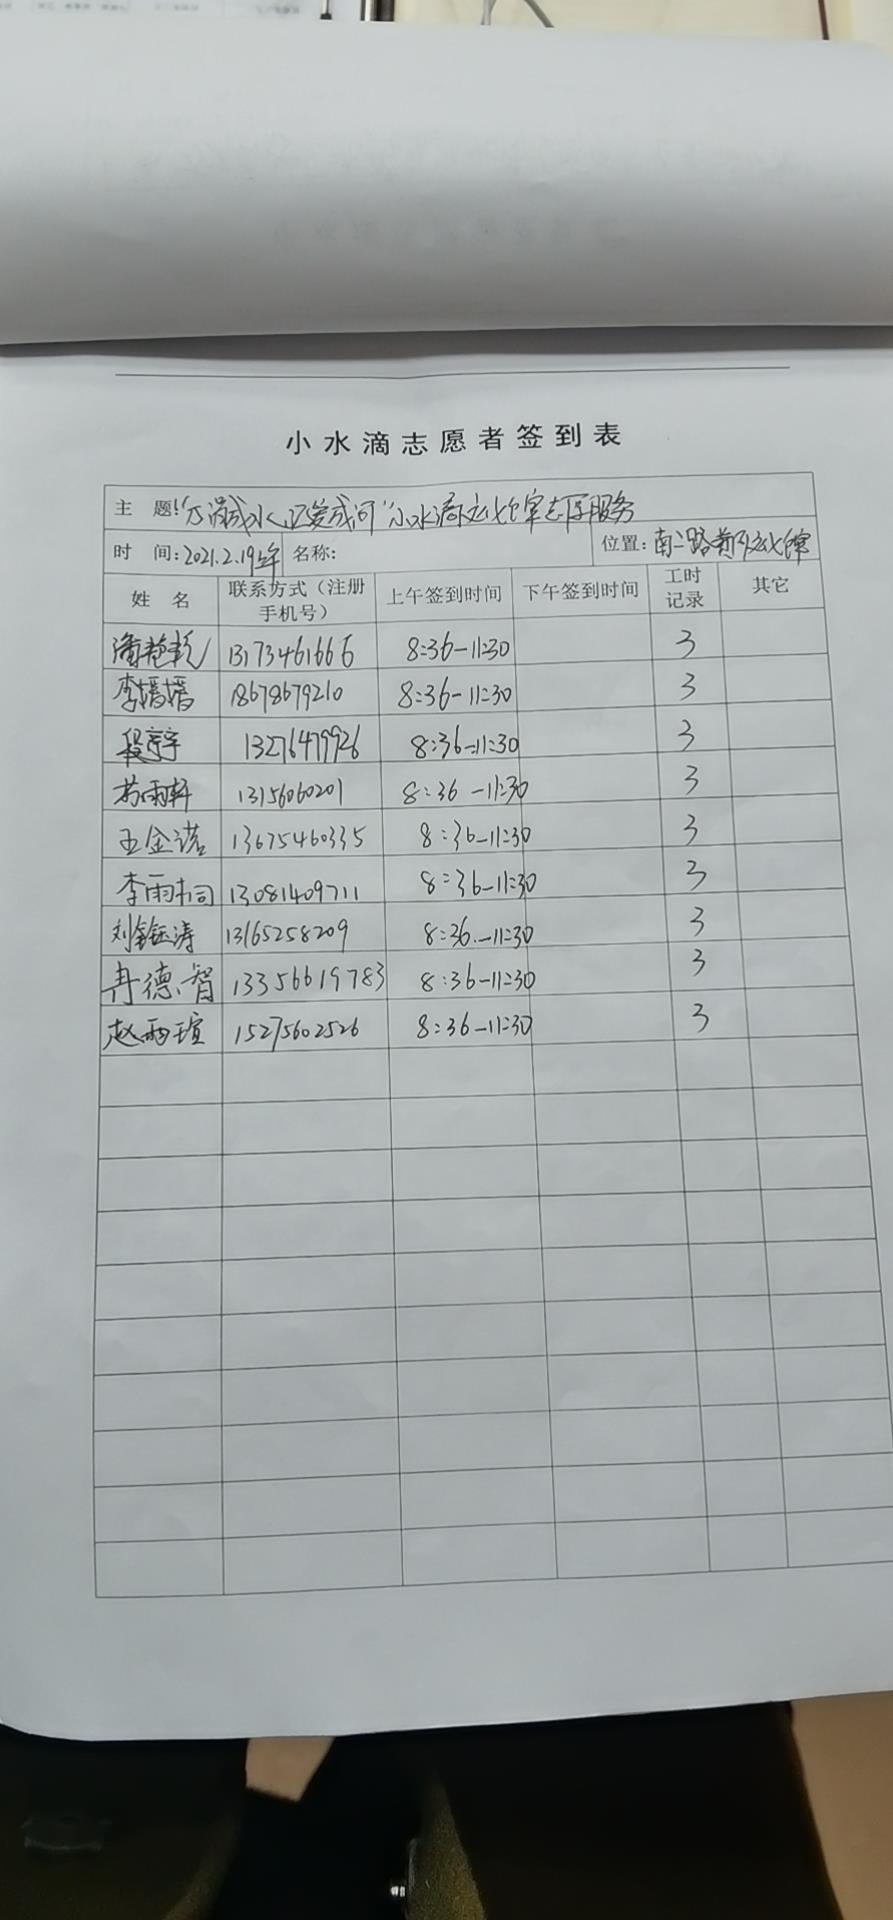 小水滴志愿者签到表
主 题: "万滴成水 汇爱成河" 小水滴文化馆志愿服务
时 间: 2021.2.19上午 名称: 位置: 南二路黄河文化馆
姓 名 联系方式（注册手机号） 上午签到时间 下午签到时间 工时记录 其它
潘艳 13173461666 8:36-11:30 3
李嫱嫱 18678679210 8:36-11:30 3
段宇 13276479926 8:36-11:30 3
苏雨轩 13156060201 8:36-11:30 3
王金诺 13675460335 8:36-11:30 3
李雨桐 13081409711 8:36-11:30 3
刘钰涛 13165258209 8:36-11:30 3
冉德智 13356619783 8:36-11:30 3
赵雨瑄 15275602526 8:36-11:30 3